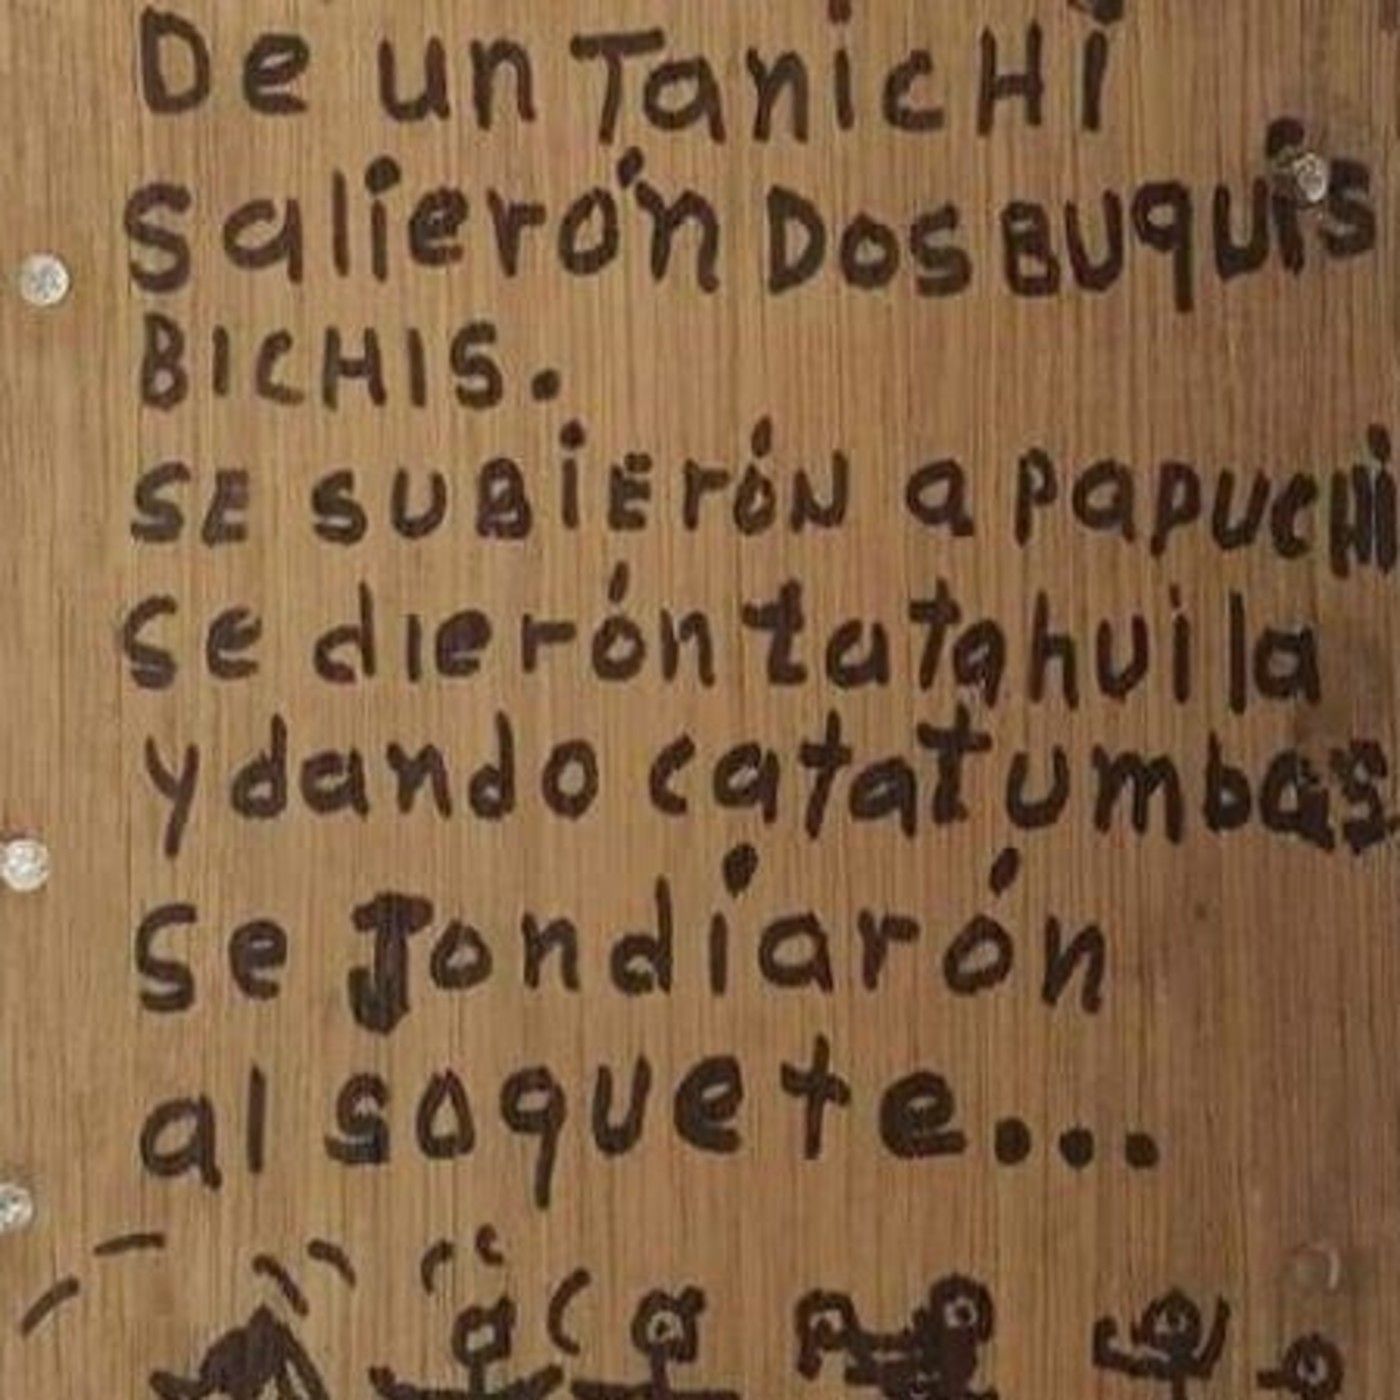 De un TanicHi
Salierón Dos BUquis
BICHIS.
SE SUBiERÓN a PaPUCHi
Se dierón tatahuila
y dando catatumbas
Se Jondíarón
al soquete...